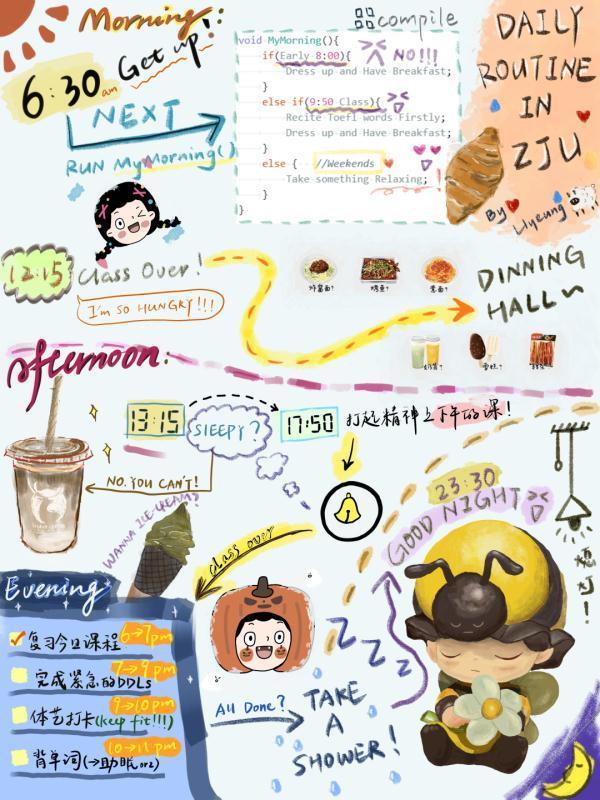 Morning:
6:30 am
Get up!
NEXT
RUN MyMorning()
compile
void MyMorning(){
if(Early 8:00){ NO!!!
Dress up and Have Breakfast;
}
else if(9:50 Class){
Recite Toefl words Firstly;
Dress up and Have Breakfast;
}
else { //Weekends
Take something Relaxing;
}
}
DAILY
ROUTINE
IN
ZJU
By Liyeung
12:15 Class Over!
I'm SO HUNGRY!!!
烤鱼?
DINNING
HALL~
Afternoon:
13:15
SLEEPY?
17:50
打起精神上下午的课!
NO. YOU CAN'T!
WANNA ICE-CREAM?
Class over
23:30
GOOD NIGHT
熄灯!
Evening
复习今日课程 6→7pm
完成紧急的DDLs 7→9 pm
体艺打卡(keep fit!!!) 9→10 pm
背单词(→助眠orz) 10→11 pm
All Done?
TAKE
A
SHOWER!
Z Z Z Z